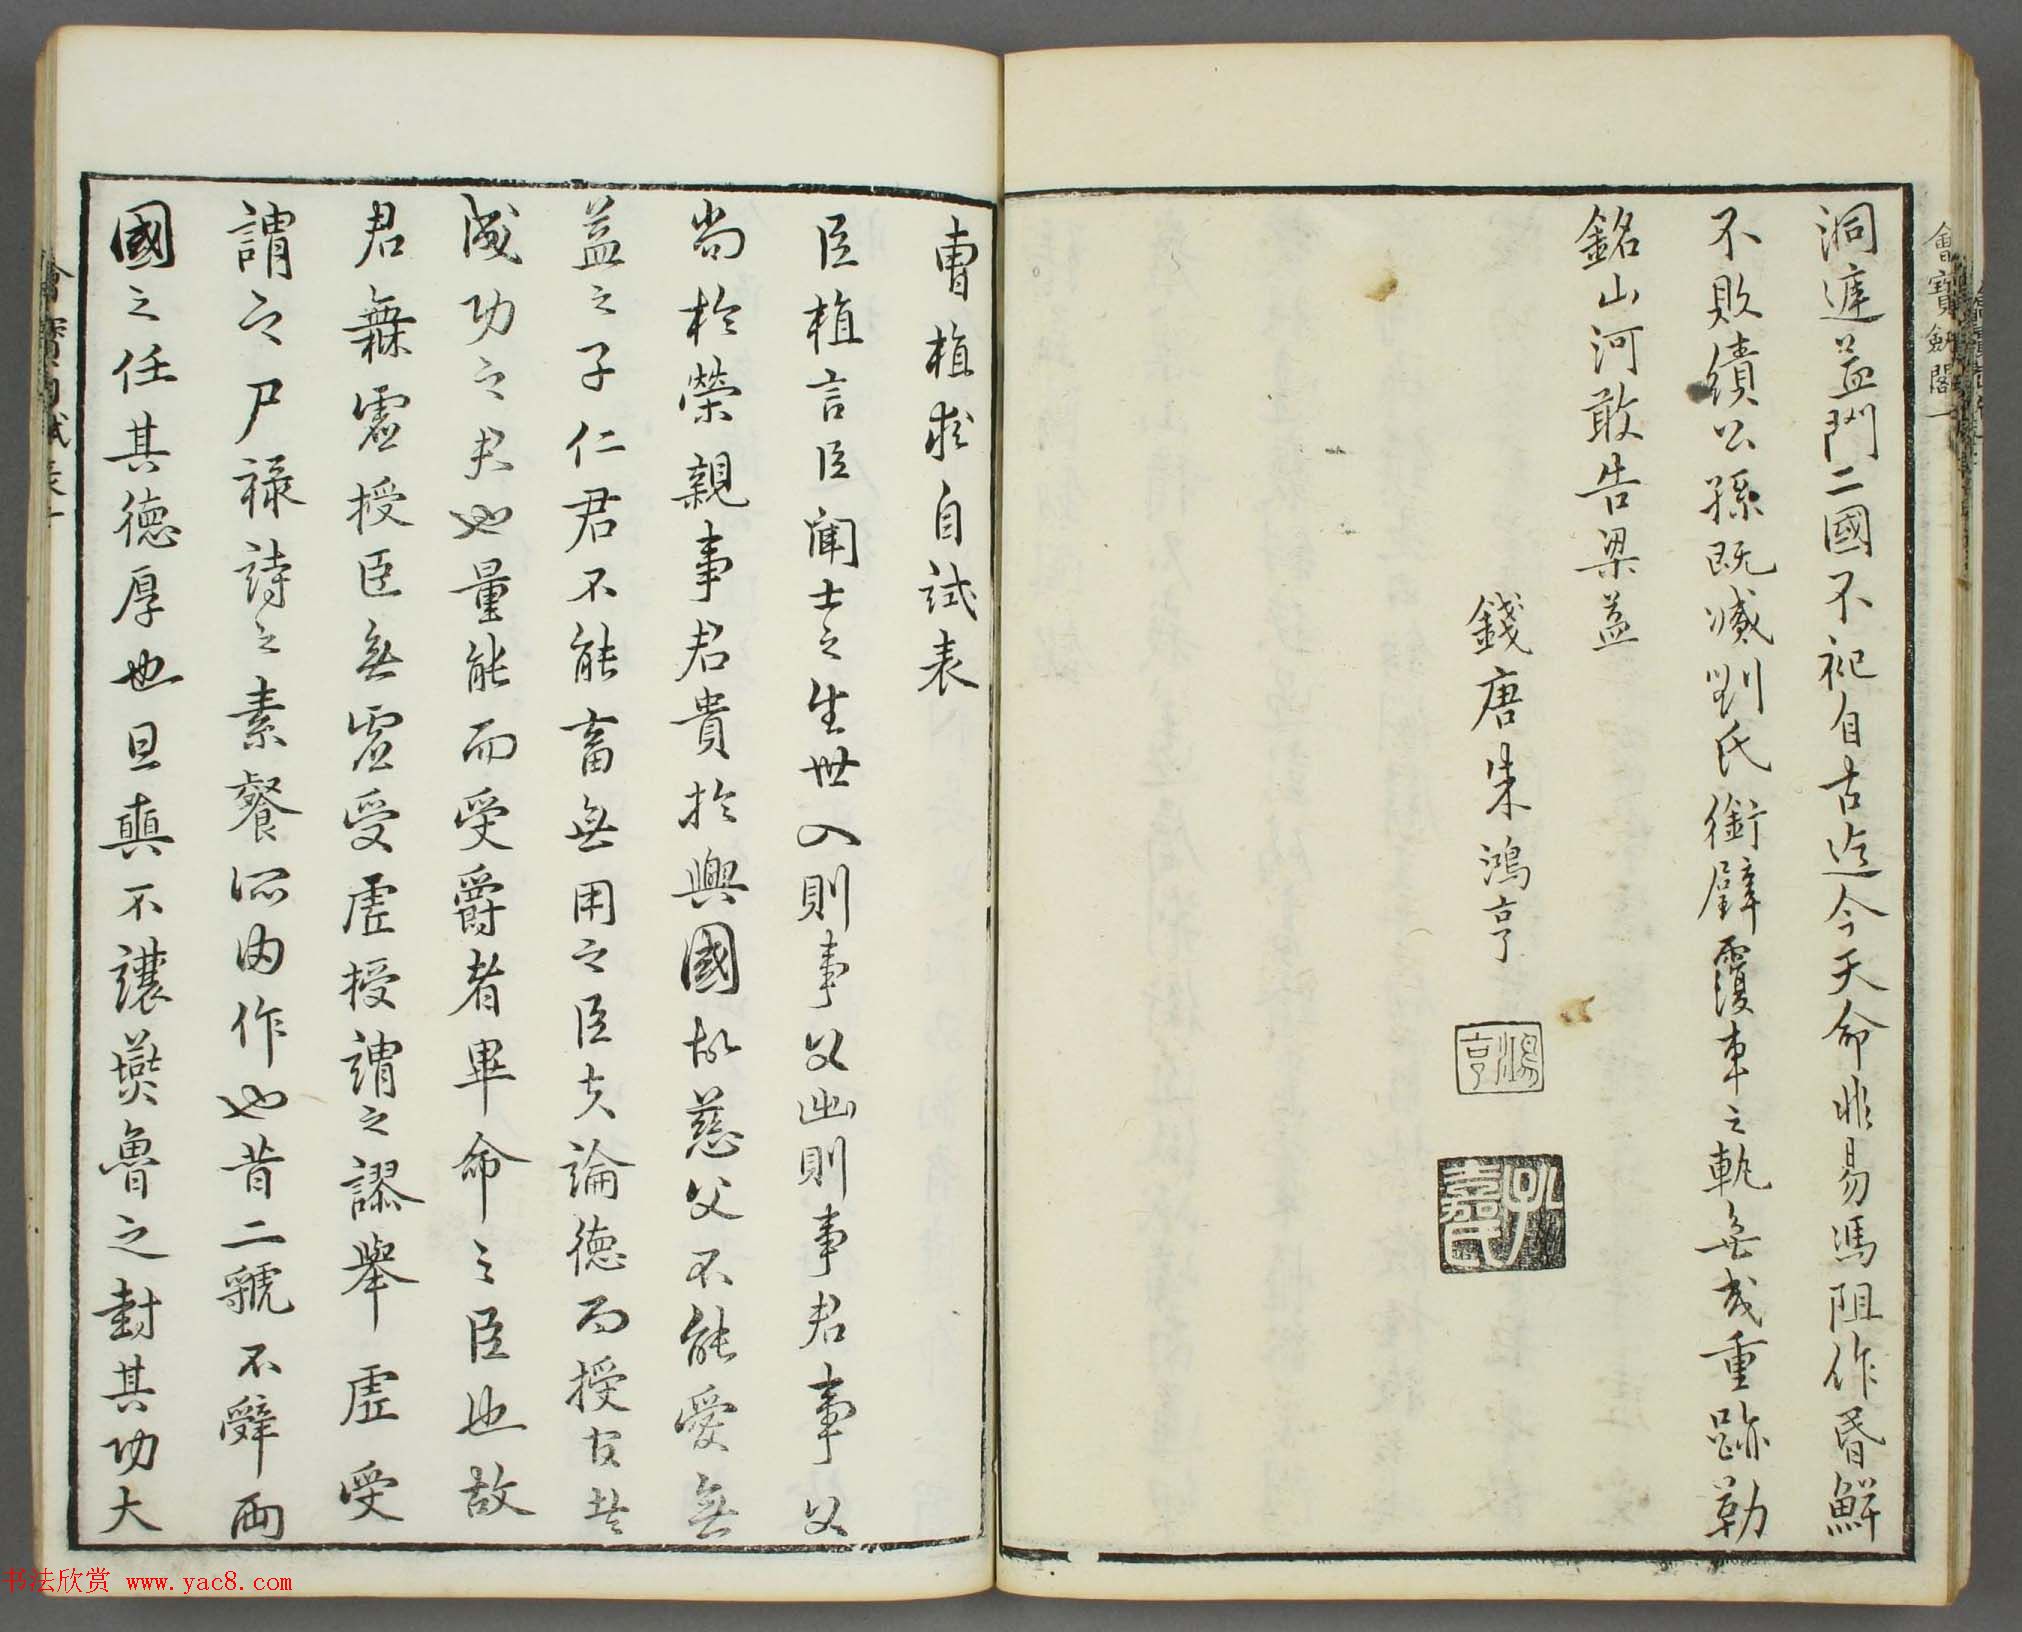 洞庭孟門二國不祀自古迄今天命非易馮阻作昏鮮
不敗績公孫既滅劉氏銜璧覆車之軌無或重跡勒
銘山河敢告梁益
錢唐朱鴻亨
鴻亨
曹植求自試表
臣植言臣聞士之生世入則事父出則事君事父
尚於榮親事君貴於興國故慈父不能愛無
益之子仁君不能畜無用之臣夫論德而授官者
成功之君也量能而受爵者畢命之臣也故
君無虛授臣無虛受虛授謂之謬舉虛受
謂之尸祿詩之素餐所由作也昔二虢不辭兩
國之任其德厚也旦奭不讓燕魯之封其功大
會寶劍閣一
书法欣赏 www.yac8.com